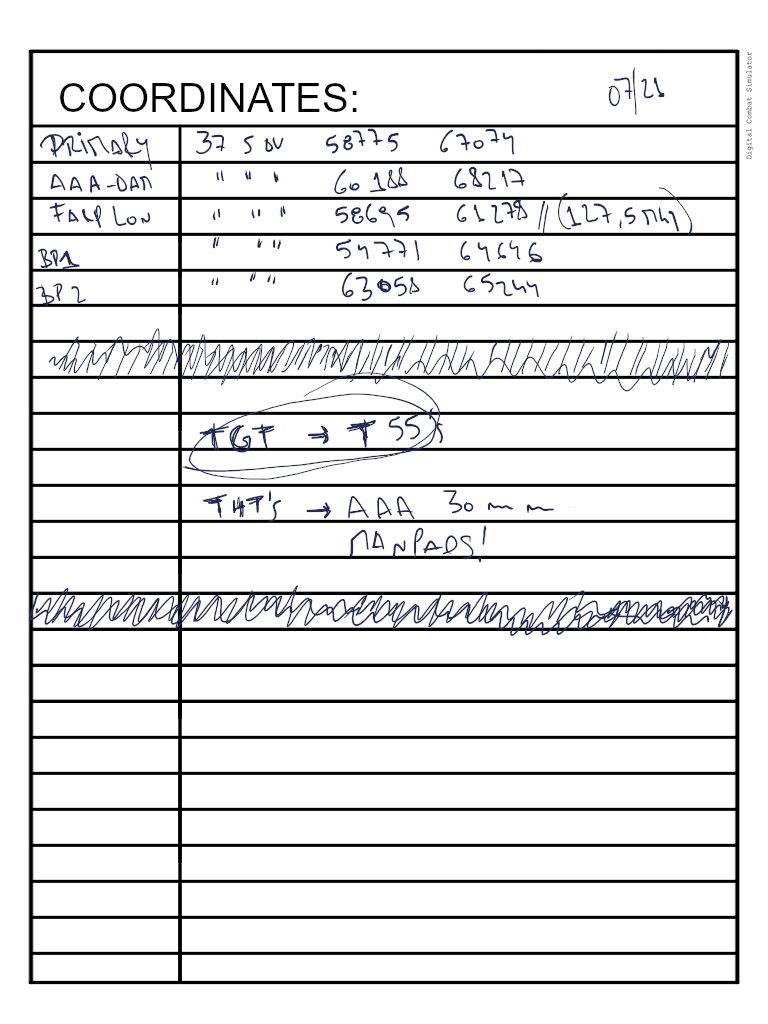 COORDINATES:
07/21
Digital Combat Simulator
PRIMARY 37 S BV 58775 67074
AAA-DAM " " " 60188 68217
FARP LON " " " 58695 61278 // (127,5 MHz)
BP1 " " " 54771 64646
BP2 " " " 63058 65244
TGT → T 55's
THT's → AAA 30mm
MANPADS!